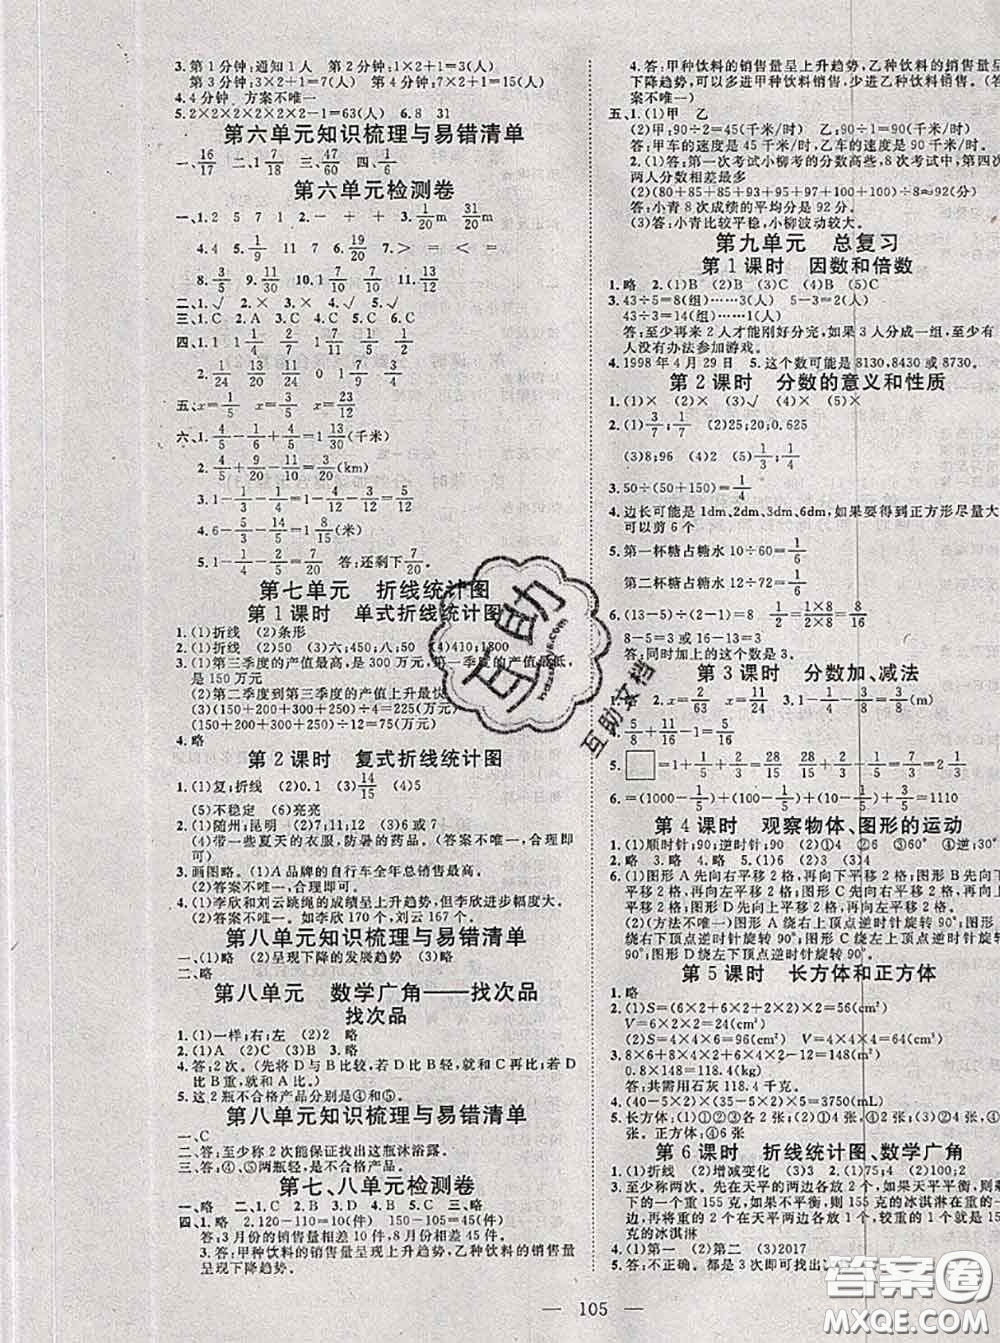 3.第1分钟:通知1人 第2分钟:1×2+1=3(人)
第3分钟:3×2+1=7(人) 第4分钟:7×2+1=15(人)
4.4分钟 方案不唯一
5.2×2×2×2×2×2-1=63(人) 6.8 31
第六单元知识梳理与易错清单
一、16/17 二、1 7/18 三、47/60 四、1/6
第六单元检测卷
一、1.2 5 7 1 2.- + + 3.1/20m 31/20m
4.4 5.1/9 11/30 6.17 19 7.> = < =
8.1/3 11/15 9.2/15 2/3 10.1/8
二、1.√ 2.× 3.√ 4.× 5.√
三、1.C 2.A 3.C 4.C 5.C 6.C
四、1.1/2 11/24 13/20 1 2/15 7/12
2.1 2/5 4/9 1 3/4 3/8
五、x=1/5 x=3/5 x=23/12
六、1.4/5-1/4-1/5+1=1 13/20(千米)
2.4/5+9/10-2/3=31/30(km)
3.1-1/2-1/5=3/10
4.6-9/20-4=1 8/15(米)
5.1-1/4-2/5=7/20 答:还剩下7/20。
第七单元 折线统计图
第1课时 单式折线统计图
1.(1)折线 (2)条形
2.(1)折线 (2)50 (3)六;450;八;50 (4)410;1800
3.(1)第三季度的产值最高,是300万元,第一季度的产值最低,
是150万元
(2)第二季度到第三季度的产值上升最快
(3)(150+200+300+250)÷4=225(万元)
(150+200+300+250)÷12=75(万元)
4.略
第2课时 复式折线统计图
1.(1)复;折线 (2)0.1 (3)14/15 (4)5
(5)不稳定 (6)亮亮
2.(1)随州;昆明 (2)7;11;12 (3)6 7
(4)带一些夏天的衣服,防暑的药品。(答案不唯一,合理即可)
3.画图略。(1)A品牌的自行车全年总销售最高。
(2)答案不唯一,合理即可。
4.(1)李欣和刘云跳绳的成绩呈上升趋势,但李欣进步幅度大。
(2)答案不唯一。如李欣170个,刘云167个。
第八单元知识梳理与易错清单
一、(1)略 (2)呈现下降的发展趋势 (3)略
第八单元 数学广角——找次品
找次品
1.(1)一样;右;左 (2)2 略
2.(1)A (2)C (3)B 3.略
4.答:2次。(先将D与B比较,若D比B轻,就和C比,若D
比B重,就和A比)
5.这2瓶不合格产品分别是④和⑤。
第八单元知识梳理与易错清单
一、C
二、答:至少称2次能保证找出这瓶沐浴露。
三、答:④、⑤两瓶是不合格产品。
第七、八单元检测卷
一、略 二、1.A 2.B 3.B 4.B 5.C 三、略
四、1.略 2.120-110=10(件) 150-105=45(件)
答:3月份的销售量相差10件,8月份的销售量相差45件。
3.答:甲种饮料的销售量呈现上升趋势,乙种饮料的销售量
呈现下降趋势。
4.答:甲种饮料的销售量呈上升趋势,乙种饮料的销售量呈
下降趋势,可以多进甲种饮料销售,少进乙种饮料销售。(答
案不唯一)
五、1.(1)甲 乙
(2)甲:90÷2=45(千米/时) 乙:90÷1=90(千米/时)
答:甲车的速度是45千米/时,乙车的速度是90千米/时。
2.(1)答:第一次考试小柳考的分数高些,8次考试中,第四次
两人分数相差最多
(2)(80+85+85+95+95+95+100+100)÷8≈92(分)
答:小青8次成绩的平均分是92分。
(3)答:小青比较平稳,小柳波动较大。
第九单元 总复习
第1课时 因数和倍数
1.略 2.(1)B (2)B (3)C (4)B (5)C
3.43÷5=8(组)……3(人) 5-3=2(人)
43÷3=14(组)……1(人)
答:至少再来2人才能刚好分完,如果3人分成一组,至少有1
人没有办法参加游戏。
4.1998年4月29日 5.这个数可能是8130,8430或8730。
第2课时 分数的意义和性质
1.(1)× (2)× (3)√ (4)× (5)×
2.(1)3/7;1/7 (2)25;20;0.625
(3)8;96 (4)2 (5)>;<;>;= (6)1/3 2/3
3.50÷(50+150)=1/4
4.边长可能是1dm、2dm、3dm、6dm,如果要得到正方形尽量大,
可以剪6个
5.第一杯糖占糖水10÷60=1/6
第二杯糖占糖水12÷72=1/6
6.(13-5)÷(21-5)=8/16=1/2=1×8/2×8=8/16
8-5=3或16-13=3
答:同时加上的这个数是3。
第3课时 分数加、减法
3.1 2.x=2/15 x=18/25 3.1/2-2/5=1/10(m)
4.5/16+9/16+2/16=1
5.□=1+1/5+2/3=28/15 28/15-2/5-1/3=17/15
6.=(1000-1/5)+(100+1/5)+(10-2/5)+2/5=1110
第4课时 观察物体、图形的运动
1.(1)顺时针;90°;逆时针;90° (2)①② (3)6 (4)⑥ (5)逆
2.略 略 3.(1)⑤ (2)②④ (3)①④
6.(1)图形A先向右平移2格,再向下平移2格,图形B先向右
平移2格,再向左平移2格;图形C先向上平移2格,再向右
平移2格;图形D先向上平移2格,再向左平移2格。
(2)(方法不唯一)图形A绕右上顶点逆时针旋转90°;图形B
绕右下顶点逆时针旋转90°;图形C绕左上顶点逆时针旋转
90°;图形D绕左下顶点逆时针旋转90°。
第5课时 长方体和正方体
1.略
2.(1)S=(6×2+6×2+2×2)×2=56(cm²)
V=6×2×2=24(cm³)
(2)S=(4×4×6=96(cm²) V=4×4×4=64(cm³)
3.8×6+8×4×2+6×4×2-12=148(m²)
0.8×148=118.4(kg)
答:共需用石灰118.4千克。
4.(20-5×2)×(25-5×2)×5=3750(mL)
5.长方体:(1)①②③各2张;(2)①4张,④2张;(3)③4张,④2
张 正方体:④6张
第6课时 折线统计图、数学广角
1.(1)折线 (2)增减变化 (3)1 2.(1)75;4 (2)100;2
3.至少称两次,先在天平的两边各放2个,如果天平平衡,则剩
下的一个重155克,如果不平衡,将含155克的冰淇淋的一边
的2个放在天平两边各1个,较重的1个就是155
克的冰淇淋
4.(1)第一 (2)第二 (3)2017
5.答:不正确。都是3次即可找出
105
互助
互助文档
答案圈
MXQE.COM